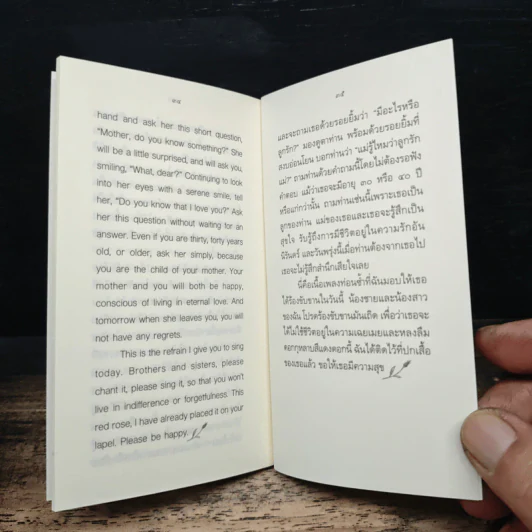 hand and ask her this short question,
"Mother, do you know something?" She
will be a little surprised, and will ask you,
smiling, "What, dear?" Continuing to look
into her eyes with a serene smile, tell
her, "Do you know that I love you?" Ask
her this question without waiting for an
answer. Even if you are thirty, forty years
old, or older, ask her simply, because
you are the child of your mother. Your
mother and you will both be happy,
conscious of living in eternal love. And
tomorrow when she leaves you, you will
not have any regrets.
This is the refrain I give you to sing
today. Brothers and sisters, please
chant it, please sing it, so that you won't
live in indifference or forgetfulness. This
red rose, I have already placed it on your
lapel. Please be happy.
๓๕
และจะถามเธอด้วยรอยยิ้มว่า "มีอะไรหรือ
ลูกรัก?" มองดูตาท่าน พร้อมด้วยรอยยิ้มที่
สงบอ่อนโยน บอกท่านว่า "แม่รู้ไหมว่าลูกรัก
แม่?" ถามท่านด้วยคำถามนี้โดยไม่ต้องรอฟัง
คำตอบ แม้ว่าเธอจะมีอายุ ๓๐ หรือ ๔๐ ปี
หรือแก่กว่านั้น ถามท่านเช่นนี้เพราะเธอเป็น
ลูกของท่าน แม่ของเธอและเธอจะรู้สึกเป็น
สุขใจ รับรู้ถึงการมีชีวิตอยู่ในความรักอัน
นิรันดร์ และวันพรุ่งนี้เมื่อท่านต้องจากเธอไป
เธอจะไม่รู้สึกสำนึกเสียใจเลย
นี่คือเนื้อเพลงท่อนซ้ำที่ฉันมอบให้เธอ
ได้ร้องขับขานในวันนี้ น้องชายและน้องสาว
ของฉัน โปรดร้องขับขานมันเถิด เพื่อว่าเธอจะ
ได้ไม่ใช้ชีวิตอยู่ในความเฉยเมยและหลงลืม
ดอกกุหลาบสีแดงดอกนี้ ฉันได้ติดไว้ที่ปกเสื้อ
ของเธอแล้ว ขอให้เธอมีความสุข